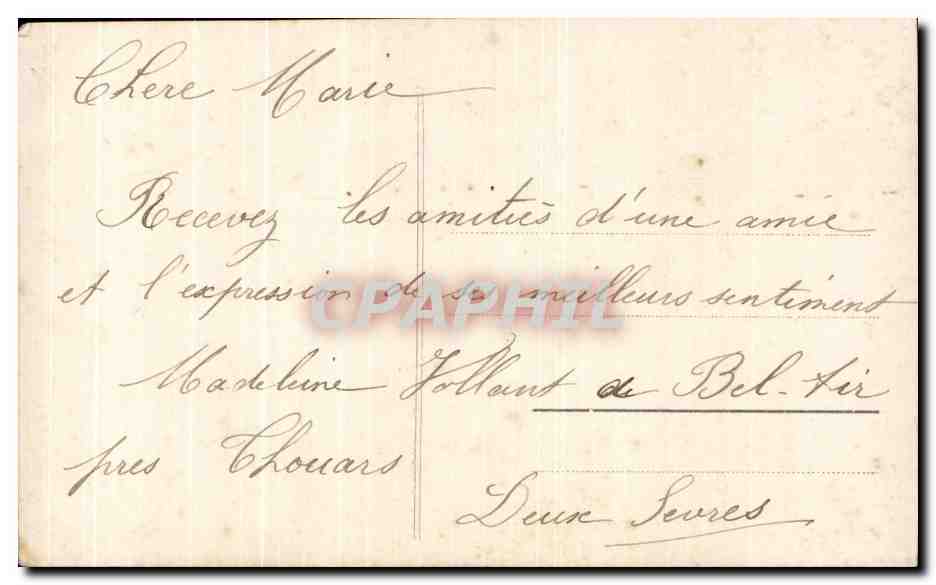 Chere Marie
Recevez les amitiés d'une amie
et l'expression de se meilleurs sentiment
CPAPHIL
Madeleine Vollant de Bel-Air
pres Thouars
Deux Sevres